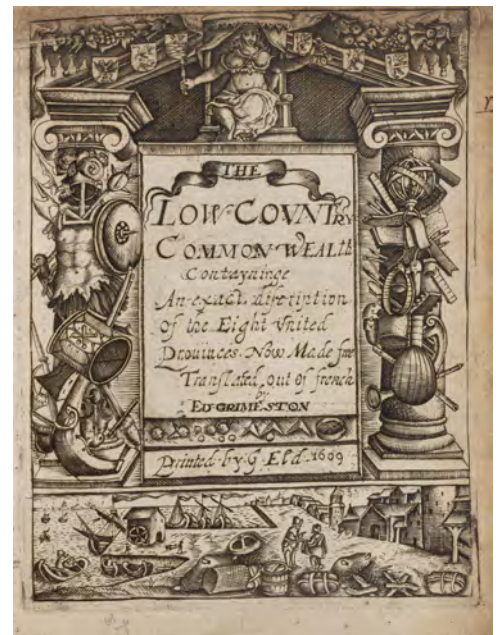 THE
LOW-COVNTRY
COMMON WEALth
Contayninge
An exact discription
Of the Eight vnited
Prouinces. Now Made free
Translated out of french
by
ED GRIMESTON
Printed by G. Eld 1609